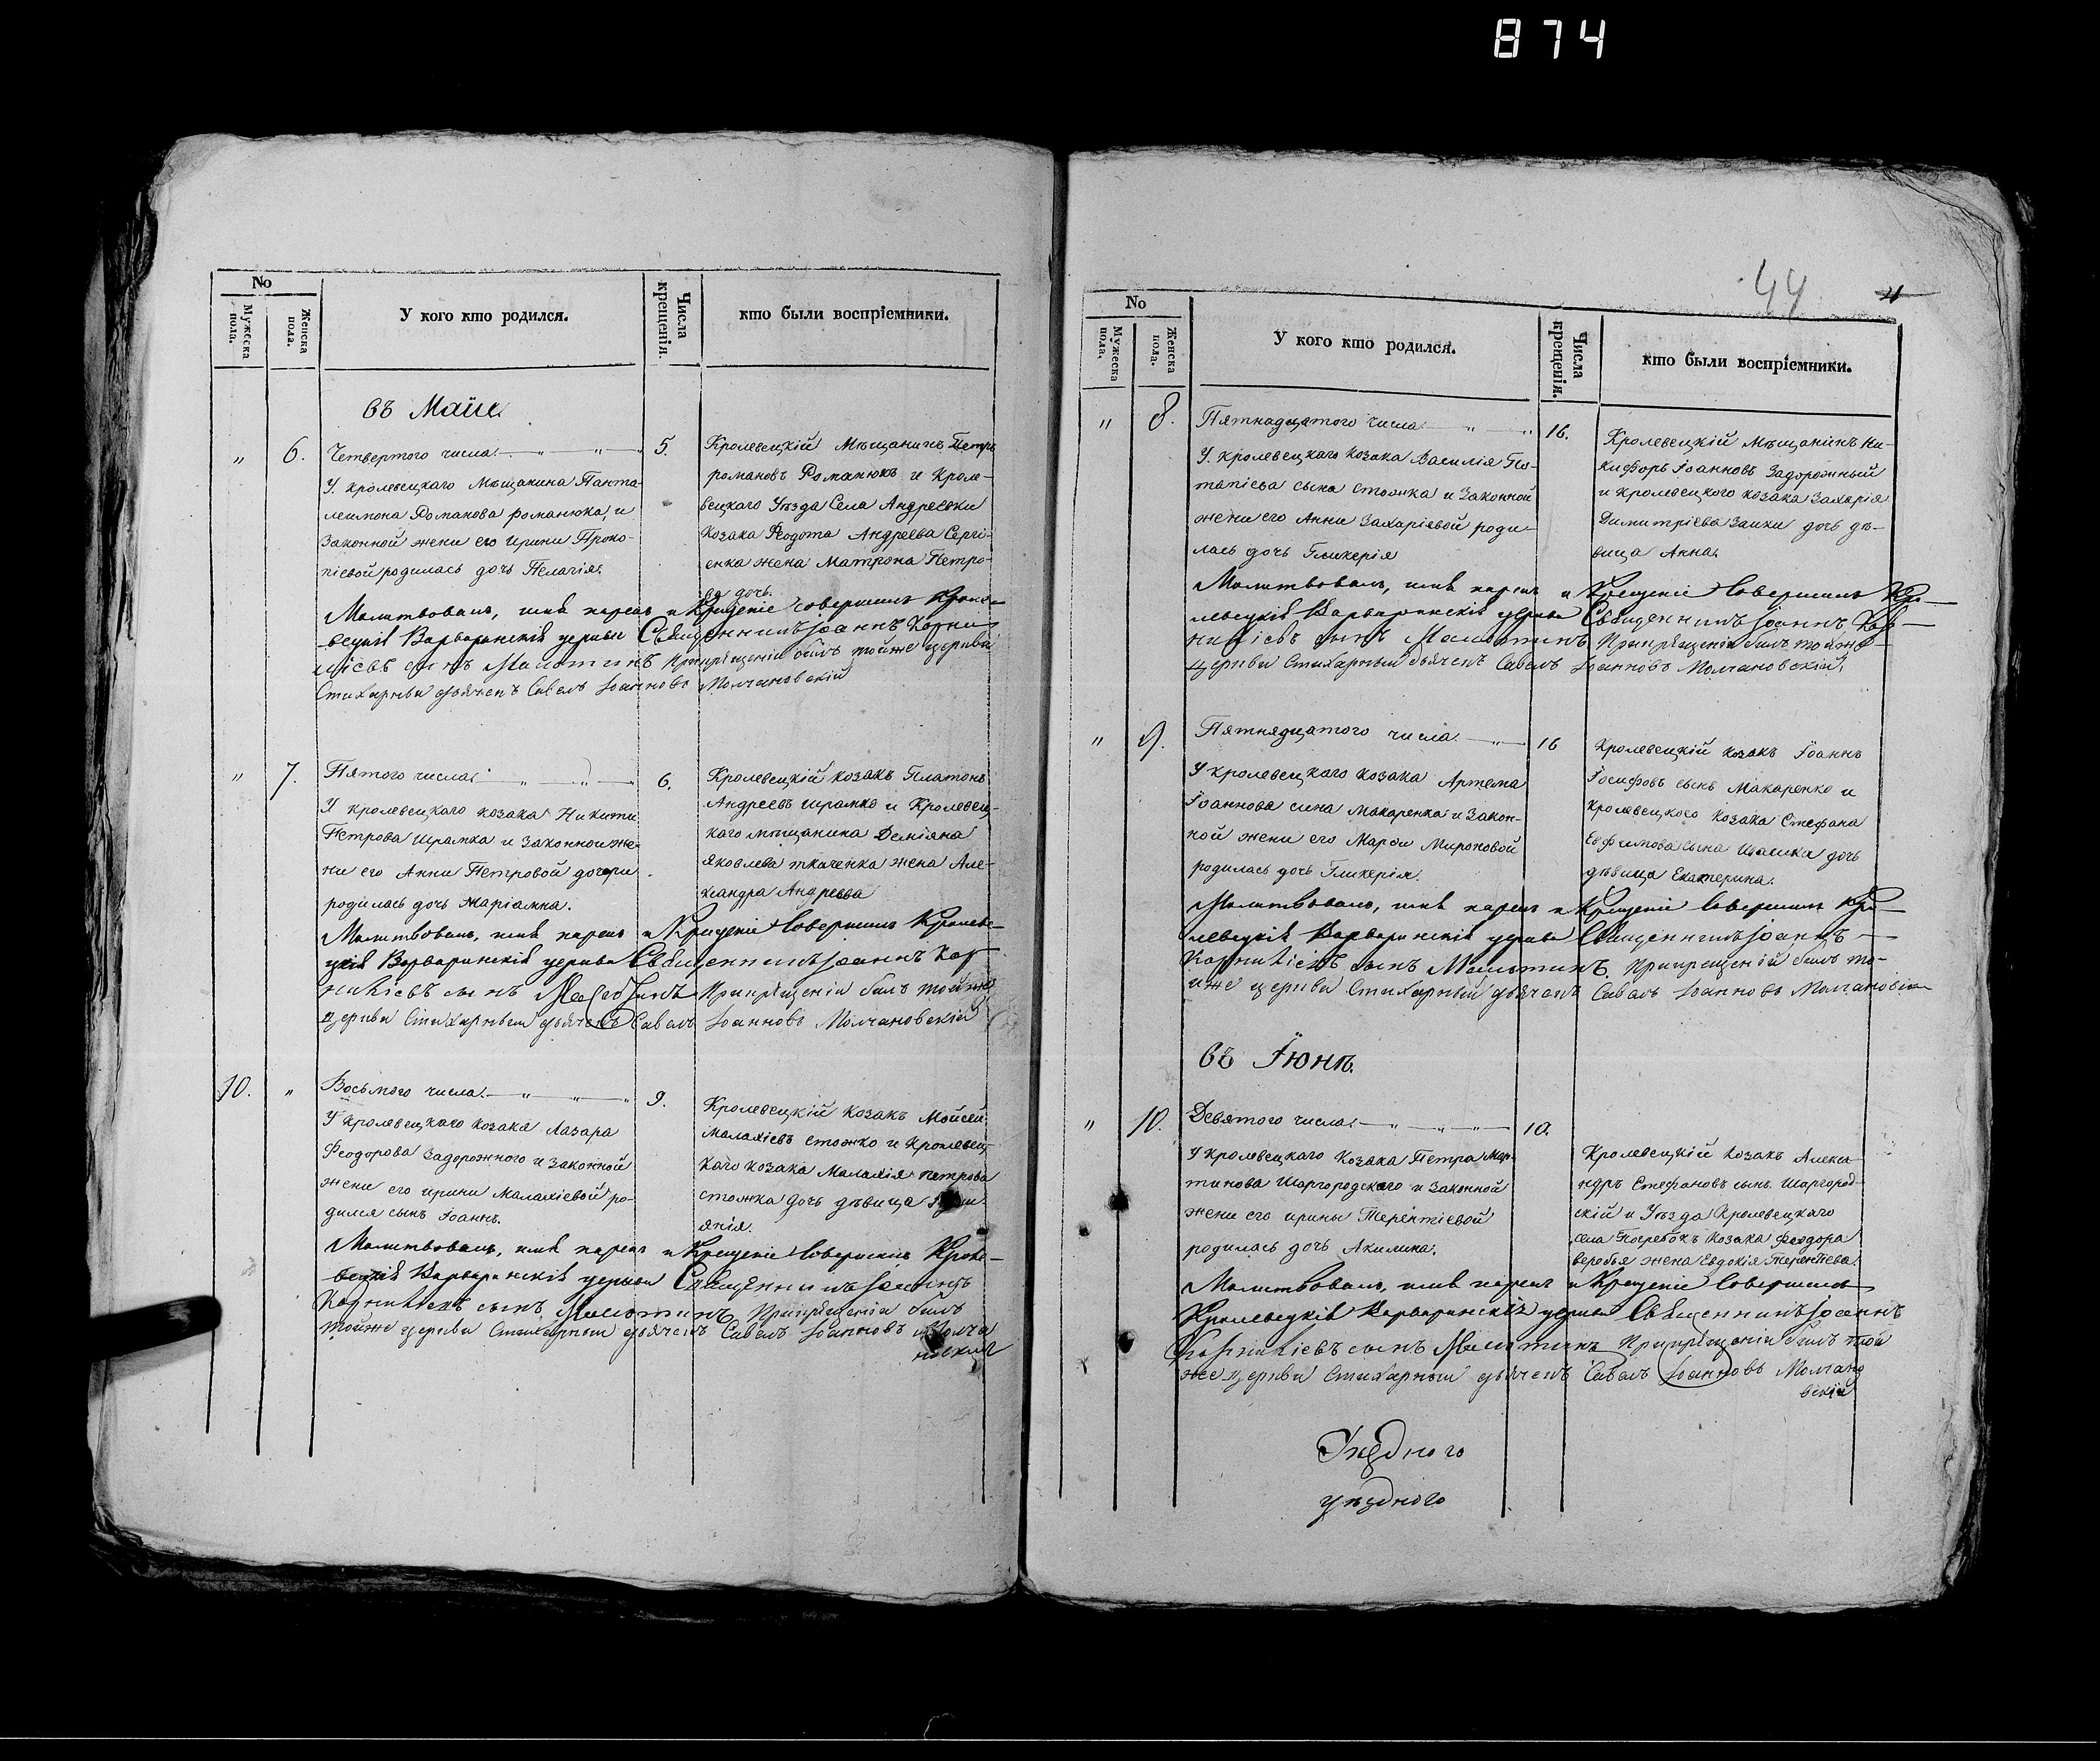 874
No
Мужеска пола.
Женска пола.
У кого кто родился.
Числа крещенія.
кто были воспріемники.
въ Маіи.
"
6.
Четвертого числа.
У кролевецкаго Мѣщанина Панта-
леимона Романова Романюка, и
Законной жени его Ирини Проко-
піевой родилась дочь Пелагія.
5.
Кролевецкій Мѣщанинъ Петръ
романовъ Романюкъ и Кроле-
вецкаго Уѣзда Села Андреевки
Козака Феодота Андреева Сергі-
енка жена Матрона Петро-
ва дочь.
Молитвовалъ, имя нарекъ и Крещеніе Совершилъ Кроле-
вецкія Варваринскія церкви Священникъ Іоаннъ Корни-
ліевъ сынъ Прикрещеніи билъ тойже церкви
Стихарный дьячекъ Савелъ Іоанновъ Молчановскій
"
7.
Пятого числа.
У кролевецкаго козака Никити
Петрова Шрамка и Законной же-
ни его Анни Петровой дочери
родилась дочь Маріамна.
6.
Кролевецкій козакъ Платонъ
Андреевъ Шрамко и Кролевец-
каго мѣщанина Деміяна
Яковлева ткаченка жена Але-
ксандра Андреева
Молитвовалъ, имя нарекъ и Крещеніе Совершилъ Кролеве-
цкія Варваринскія церкви Священникъ Іоаннъ Кор-
ниліевъ сынъ Прикрещеніи билъ тойже
церкви Стихарный дьячекъ Савелъ Іоанновъ Молчановскій
10.
"
Восьмого числа.
У Кролевецкаго козака Лазара
Феодорова Задорожного и Законной
жени его ирини Малахіевой ро-
дился сынъ Іоаннъ.
9.
Кролевецкій козакъ Мойсей
Малахіевъ стожко и Кролевец-
каго козака Малахія петрова
стожка дочь дѣвица
Молитвовалъ, имя нарекъ и Крещеніе Совершилъ Кроле-
вецкія Варваринскія церкви Священникъ Іоаннъ
Корниліевъ сынъ Прикрещеніи билъ
тойже церкви Стихарный дьячекъ Савелъ Іоанновъ Молча
новскій
44
No
Мужеска пола.
Женска пола.
У кого кто родился.
Числа крещенія.
кто были воспріемники.
"
8.
Пятнадцатого числа
У. кролевецкаго козака Василія По-
тапіева сына стожка и Законной
жени его Анни Захаріевой роди-
лась дочь Гликерія
16.
Кролевецкій Мѣщанинъ Ни-
кифоръ Іоанновъ Задорожный
и кролевецкого козака Захарія
Димитріева Заики дочь дѣ-
вица Анна.
Молитвовалъ, имя нарекъ и Крещеніе Совершилъ Кро-
левецкія Варваринскія церкви Священникъ Іоаннъ Кор-
ниліевъ сынъ Прикрещеніи билъ тойже
церкви Стихарный дьячекъ Савелъ Іоанновъ Молчановскій,
"
9.
Пятнядцатого числа.
У кролевецкаго козака Артема
Іоаннова сина Макаренка и Закон-
ной жени его Марфи Мироновой
родилась дочь Гликерія.
16
Кролевецкій козакъ Іоаннъ
Іосифовъ сынъ Макаренко и
кролевецкого козака Стефана
Евфимова сына дочь
дѣвица Екатерина.
Молитвовалъ, имя нарекъ и Крещеніе Совершилъ Кро-
левецкія Варваринскія церкви Священникъ Іоаннъ
Корниліевъ сынъ Прикрещеніи билъ то-
йже церкви Стихарный дьячекъ Савелъ Іоанновъ Молчановскій
въ Іюнѣ.
"
10.
Девятого числа.
У кролевецкаго Козака Петра Мар-
тинова Шаргородскаго и Законной
жени его ирины Терентіевой
родилась дочь Акилина.
10.
Кролевецкій Козакъ Алекса-
ндръ Стефановъ сынъ Шаргород-
скій и Уѣзда Кролевецкаго
села Козака Феодора
веробья жена Евдокія Терентіева.
Молитвовалъ, имя нарекъ и Крещеніе Совершилъ
Кролевецкія Варваринскія церкви Священникъ Іоаннъ
Корниліевъ сынъ Прикрещеніи билъ той
же церкви Стихарный дьячекъ Савелъ Іоанновъ Молчано
вскій
уѣздного